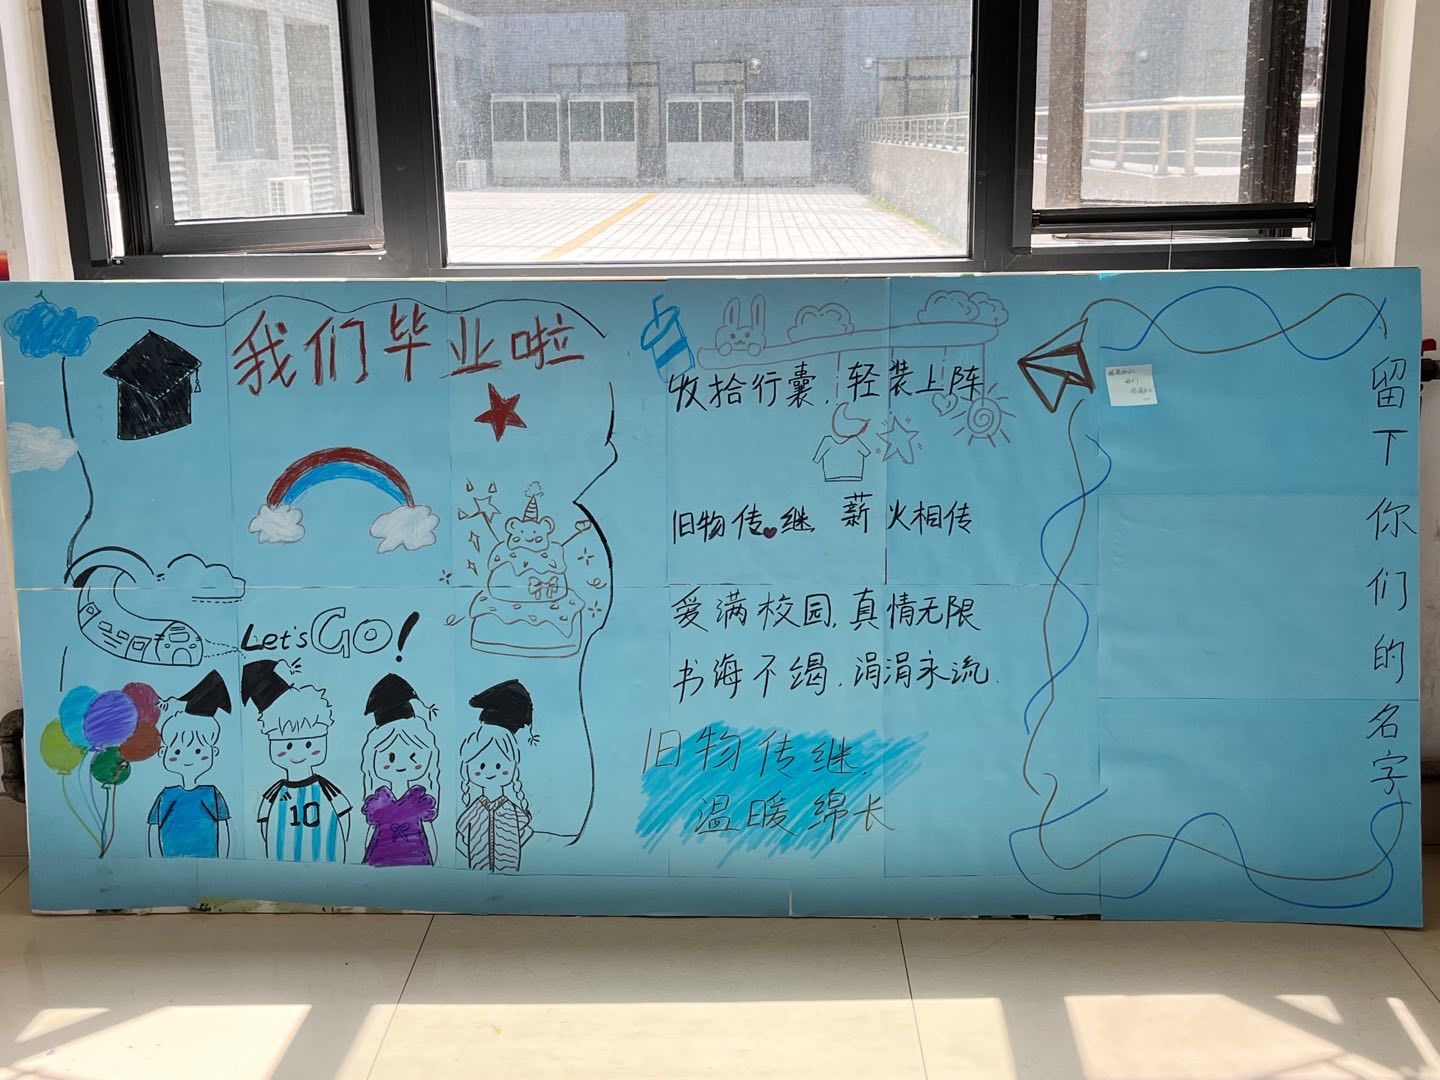 我们毕业啦
Let's GO!
10
收拾行囊，轻装上阵
旧物传继 薪火相传
爱满校园，真情无限
书海不竭，涓涓永流.
旧物传继，
温暖绵长
留下你们的名字